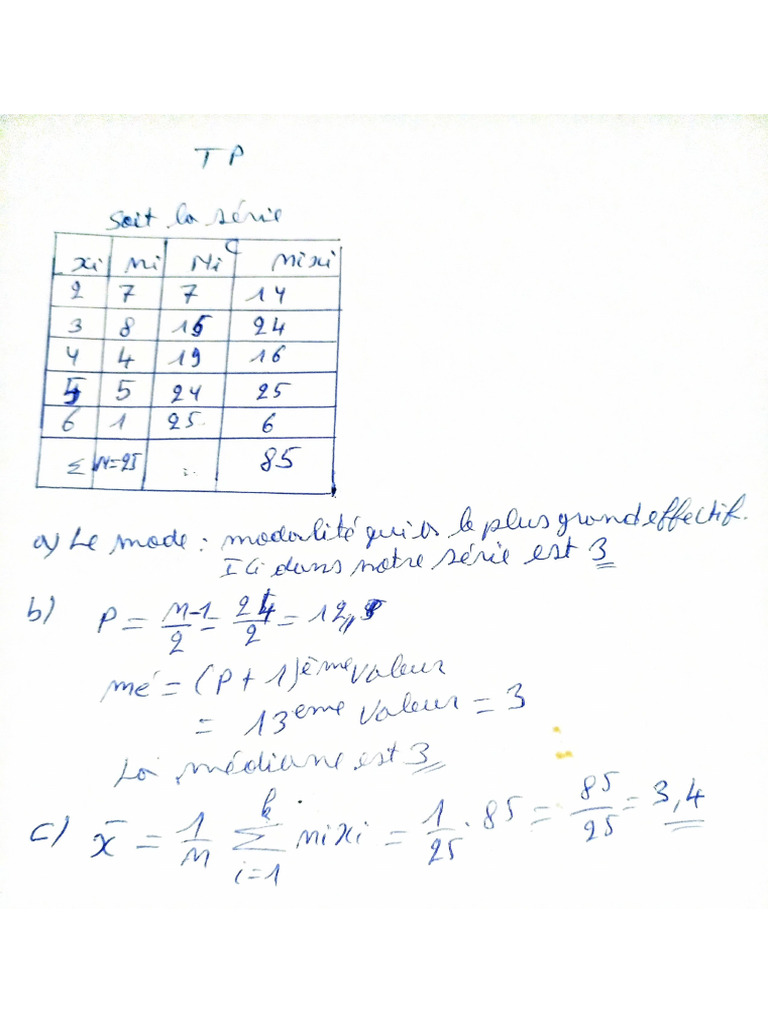 TP
Soit la série
xi ni Ni c nixi
2 7 7 14
3 8 15 24
4 4 19 16
5 5 24 25
6 1 25 6
Σ N=25 .. 85
a) Le mode : modalité qui a le plus grand effectif.
Ici dans notre série est 3
b) P = n-1/2 = 24/2 = 12
mé = (P+1)ème valeur
= 13ème valeur = 3
La médiane est 3
c) x̄ = 1/n Σ k i=1 nixi = 1/25 . 85 = 85/25 = 3,4